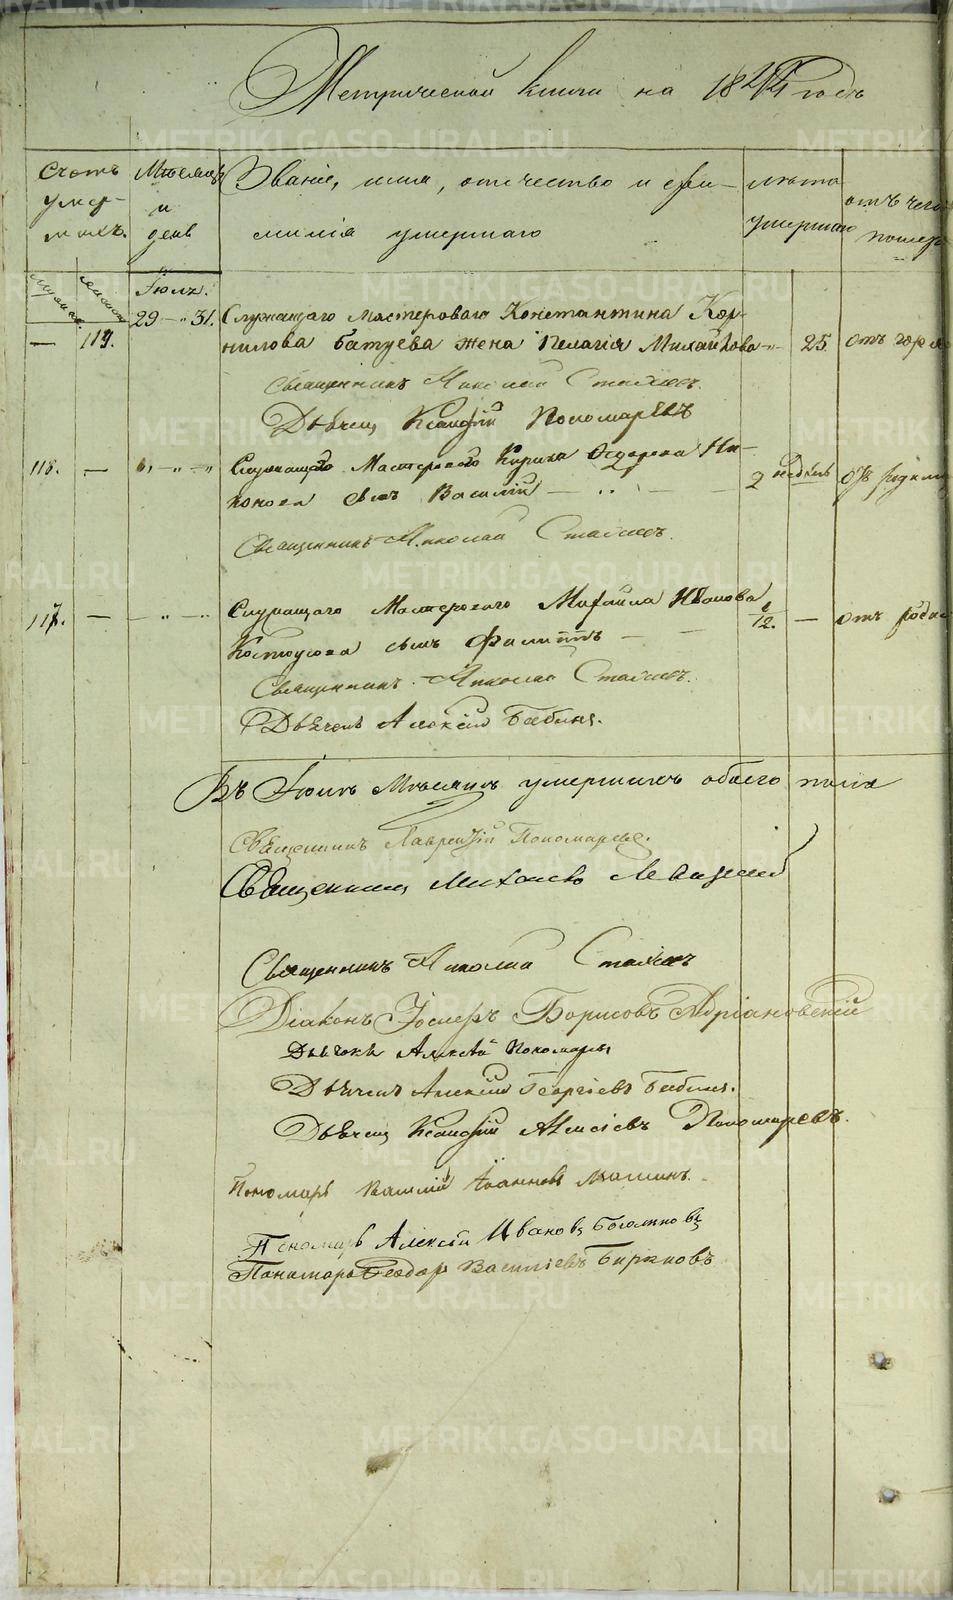 Метрической книги на 1842 годъ
Счетъ умер-шихъ.
Мѣсяцъ и день
Званіе, имя, отечество и фа-
милія умершаго
лѣта умершаго
отъ чего помер
Іюль.
29 — „ 31. Служащаго мастероваго Константина Кор-
нилова Батуева жена Пелагія Михайлова — 25. отъ
— 119.
Священникъ Николай
Дьячекъ Ксенофій Пономаревъ
118. — Служащаго Мастероваго Кирила Ѳедорова Ни-
конова сынъ Василій — 2 недѣль отъ
Священникъ Николай
117. — Служащаго Мастероваго Михайла Иванова
сынъ Филиппъ — /12. — отъ
Священникъ Николай
Дьячекъ Алексѣй Бабинъ.
Въ Іюлѣ Мѣсяцѣ умершихъ обоего пола
Священникъ Лаврентій Пономаревъ.
Священникъ Михаилъ
Священникъ Николай
Діаконъ Іосифъ Борисовъ Адріановскій
Дьячекъ Алексѣй Пономаревъ
Дьячекъ Алексѣй Георгіевъ Бабинъ.
Дьячекъ Ксенофій Алексіевъ Пономаревъ.
Пономарь Василій Іоанновъ
Пономарь Алексѣй Ивановъ Боголюбовъ
Пономарь Ѳеодоръ Василіевъ Бирюковъ
METRIKI.GASO-URAL.RU